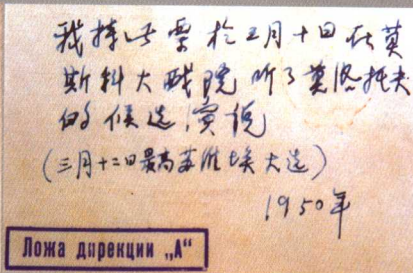 我持此票于三月十日在莫
斯科大戏院听了莫洛托夫
的候选演说
(三月十二日最高苏维埃大选)
1950年
Ложа дирекции „А“